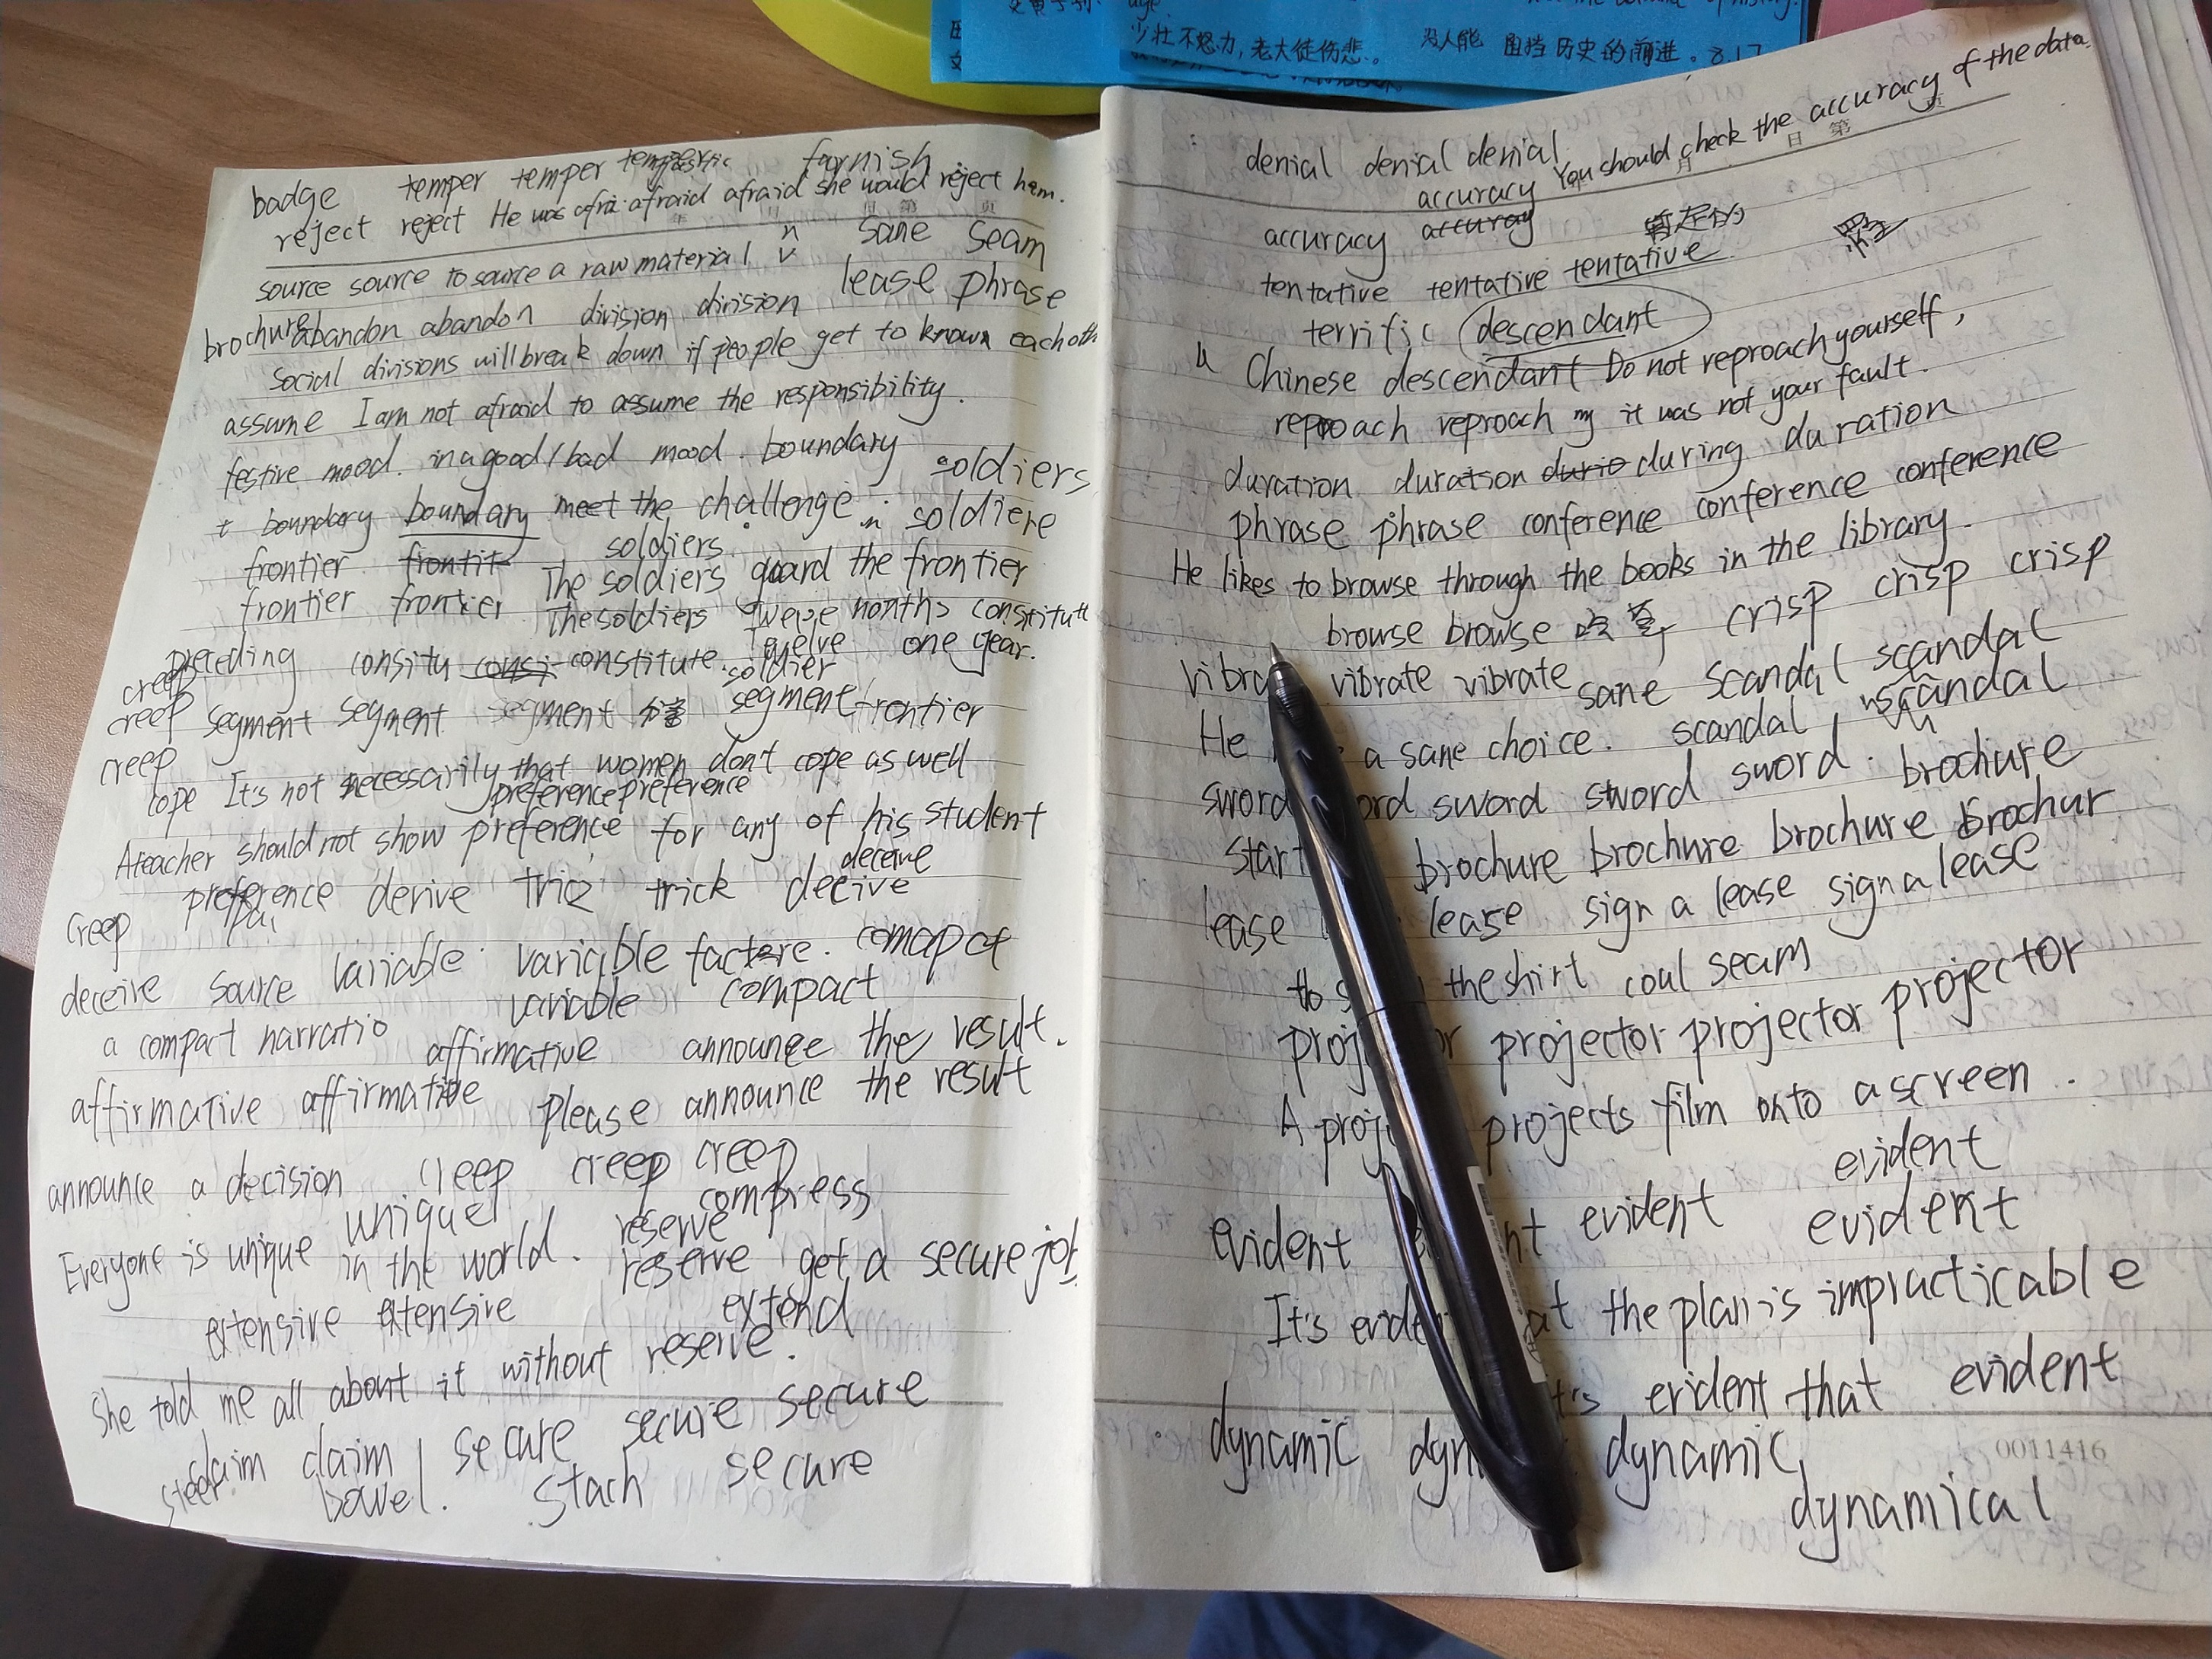 少壮不努力,老大徒伤悲。
没人能 阻挡历史的前进。8.17
badge temper temper furnish
reject reject He was afraid afraid she would reject him.
source source to source a raw material n v sane seam
lease phrase
brochure abandon abandon division division
social divisions will break down if people get to known each oth
assume I am not afraid to assume the responsibility.
festive mood. in a good/bad mood. boundary soldiers
boundary boundary meet the challenge. soldiere
frontier frontit soldiers
The soldiers guard the frontier
frontier frontier The soldiers twelve months constitute
preceding consitu consi- constitute. twelve one year.
creep soldier
creep segment segment segment segment frontier
creep
cope It's not necessarily that women don't cope as well
preference preference
A teacher should not show preference for any of his student
deceive
creep preference derive tric trick decive
deceive source variable variable factere. comapct
variable compact
a compact narratio affirmative announce the result.
affirmative affirmative please announce the result
announce a decision creep creep creep
unique compress
reserve
Everyone is unique in the world. reserve get a secure job.
extensive extensive extend
She told me all about it without reserve.
claim claim secure secure secure
steer bowel. stach secure
denial denial denial
accuracy You should check the accuracy of the data.
accuracy accuray 暂定的
tentative tentative tentative
terrific descendant
a Chinese descendant Do not reproach yourself,
reproach reproach my it was not your fault.
duration duration durio during duration
phrase phrase conference conference conference
He likes to browse through the books in the library.
browse browse crisp crisp crisp
vibra vibrate vibrate sane scandal scandal
He a sane choice. scandal scandal
sword ord sword sword sword. brochure
start brochure brochure brochure brochur
lease lease sign a lease sign a lease
to s the shirt coul seam
proj or projector projector projector
A proj projects film onto a screen.
evident
evident nt evident evident
It's evide at the plan is impracticable
t's evident that evident
dynamic dyn dynamic
0011416
dynamical